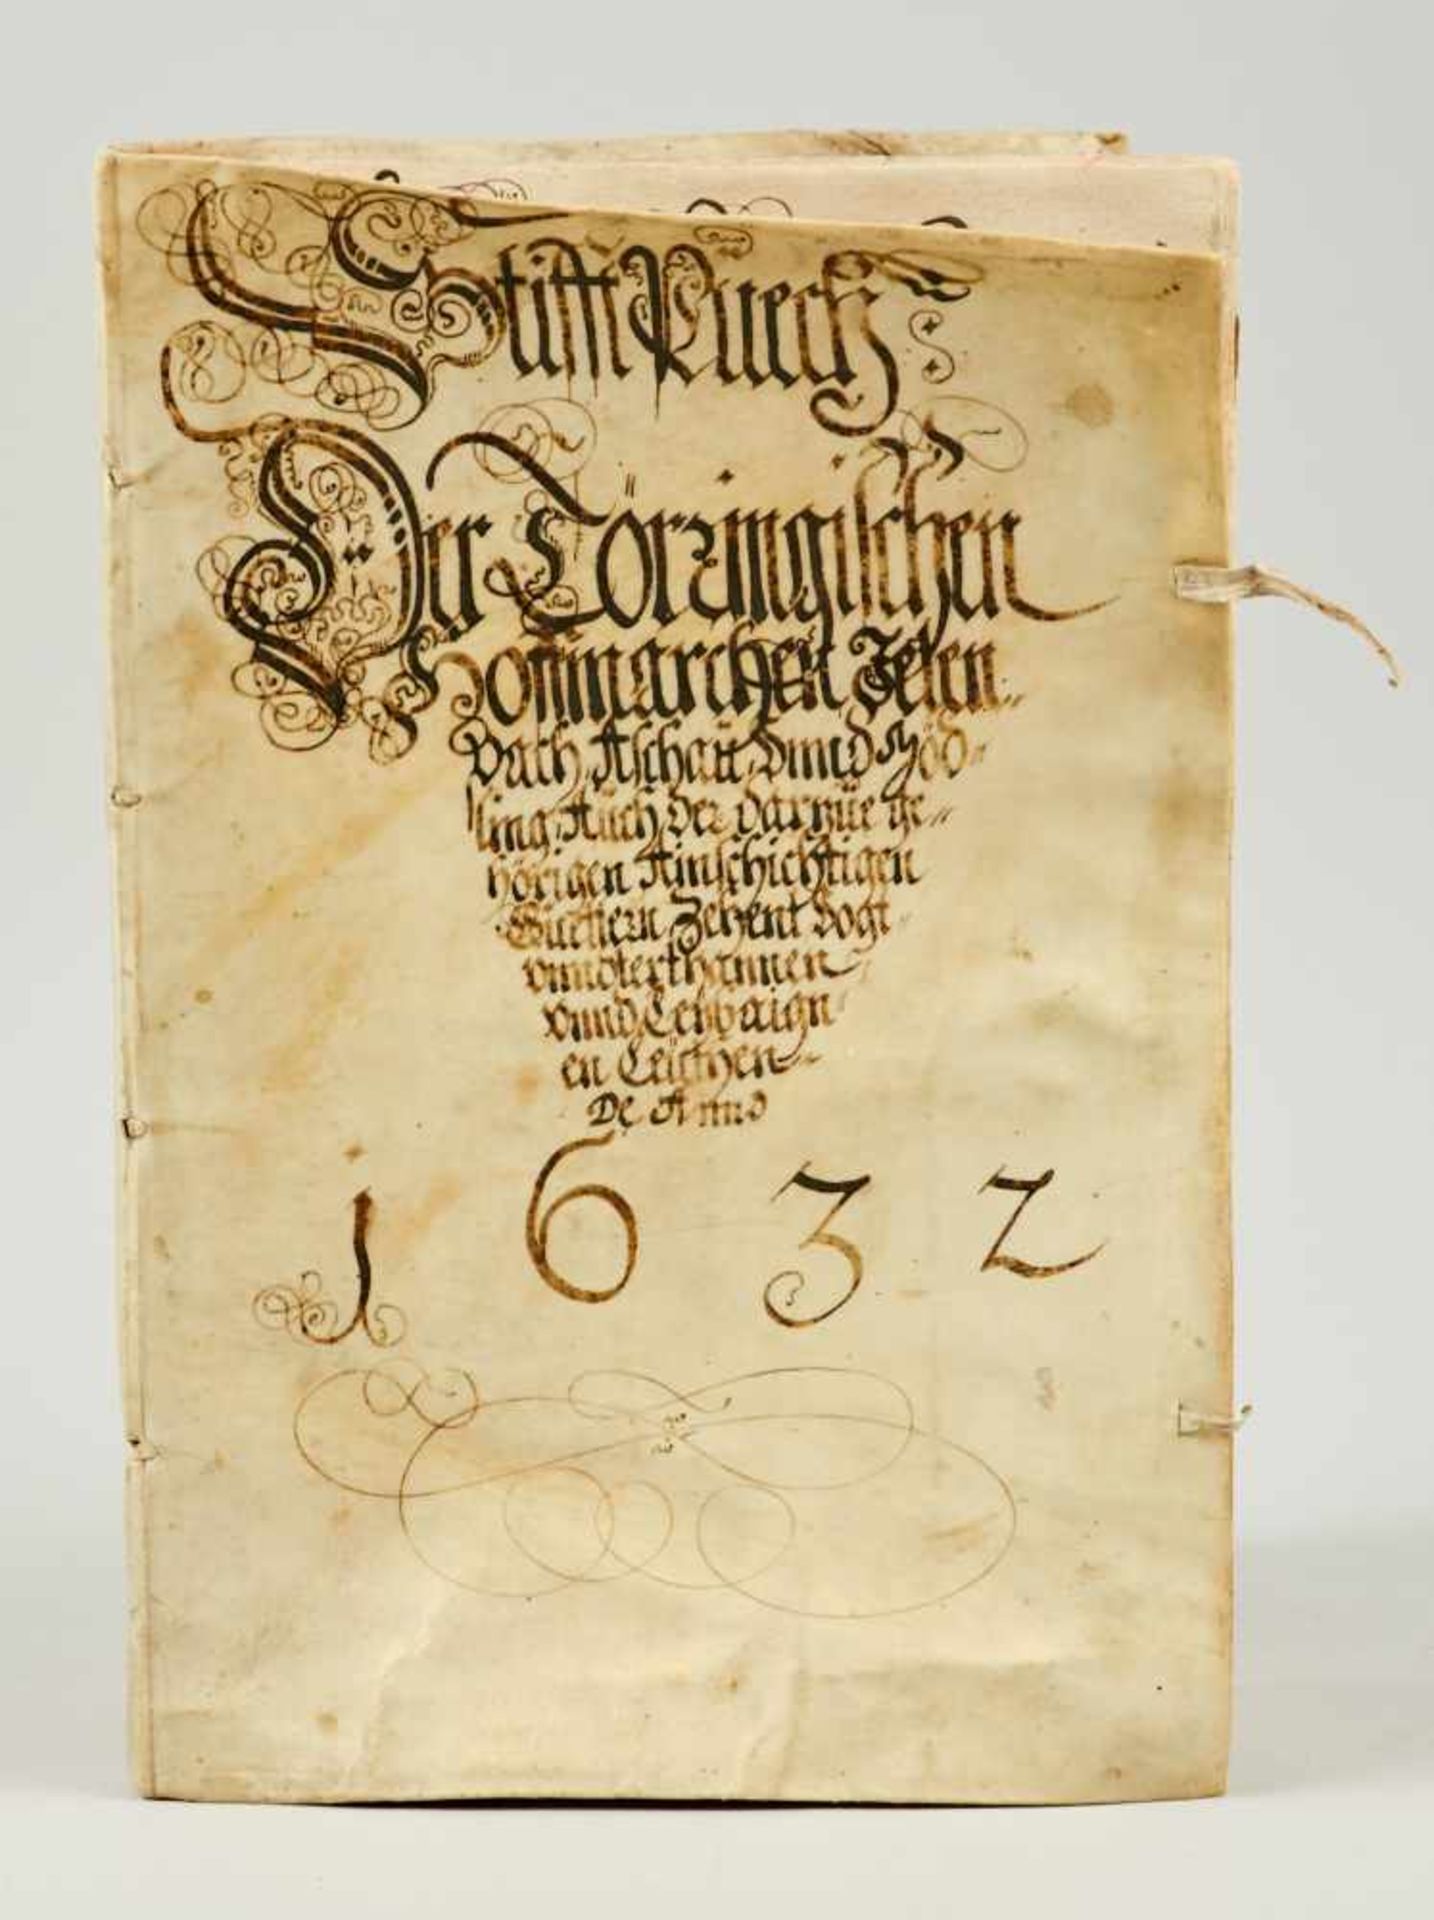 Stifft Puech
Der Törzingischen
Hoffmarchen Jeten-
Pach Aschau Vnnd Höd-
ling Auch Der darzüe ge-
hörigen Ainschichtigen
Güettern Zehent Vogt
vnndterthannen
vnnd Leybaign
en Leüthen
De Anno
1632